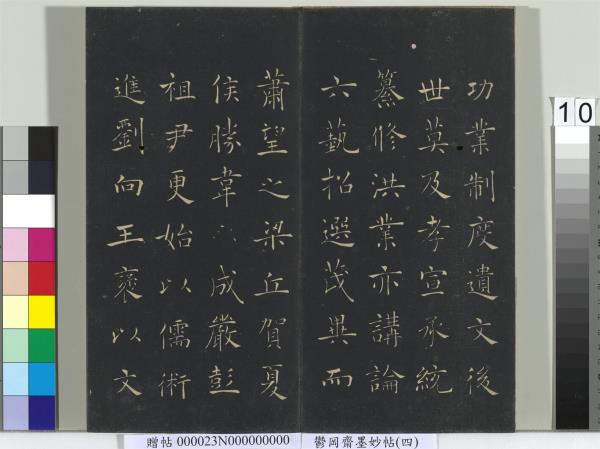 功業制度遺文後
世莫及孝宣承統
纂修洪業亦講論
六藝招選茂異而
蕭望之梁丘賀夏
侯勝韋 成嚴彭
祖尹更始以儒術
進劉向王褒以文
10
贈帖 000023N000000000
鬱岡齋墨妙帖(四)